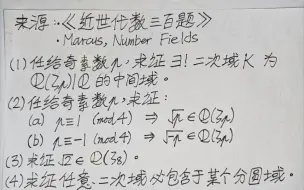 来源:·《近世代数三百题》
·Marcus, Number Fields
(1) 任给奇素数p, 求证 ∃! 二次域 K 为
Q(ζp)|Q 的中间域。
(2) 任给奇素数p, 求证:
(a) p≡1 (mod 4) ⇒ √p ∈ Q(ζp)
(b) p≡-1 (mod 4) ⇒ √-p ∈ Q(ζp)
(3) 求证 √2 ∈ Q(ζ8)。
(4) 求证任意二次域必包含于某个分圆域。